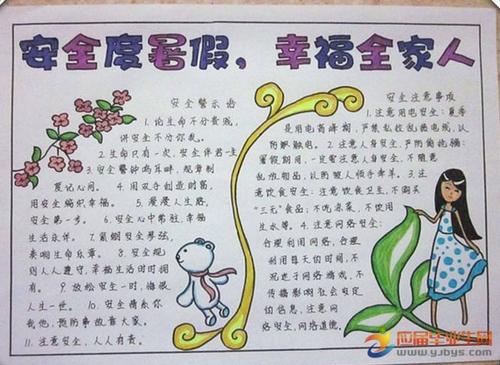 安全度暑假，幸福全家人
安全警示语
1. 论生命不分贵贱，
讲安全不分你我。
2. 生命只有一次，安全伴君一生
3. 安全警钟鸣耳畔，规章制
度记心间。 4. 用双手创造财富，
用安全编织幸福。 5. 漫漫人生路，
安全第一步。 6. 安全心中常驻，幸福
生活永伴。 7. 紧绷安全琴弦，
奏响生命乐章。 8. 安全规
则人人遵守，幸福生活时时拥
有。 9. 放松安全一时，痛恨
人生一世。 10. 安全情系你
我他，预防事故靠大家。
11. 注意安全，人人有责。
安全注意事项
1. 注意用电安全：夏季
是用电高峰期，严禁私拉乱接电线，以
防触电。 2. 注意人身安全，严防
暑假期间，一定要注意人身安全，不随意
乱放物品，以防被人顺手牵羊。 3. 注
意饮食安全：注意饮食卫生，不购买
“三无”食品；不吃凉菜，不饮用
生水等。 4. 注意网络安全：
合理利用网络，合理
利用每天的时间，不
沉迷于网络游戏，不
传播影响社会安定
的信息，注意网
络安全，网络道德。
应届毕业生网
www.yjbys.com